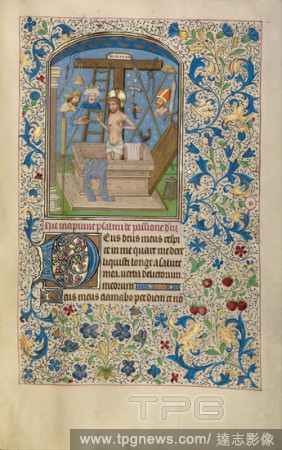 psalmi de passione dni
Deus deus meus respi
ce in me quare me dere
liquisti longe a salute
mea verba delictorum
meorum
Deus meus clamabo per diem et no
TPG
www.tpgnews.com/ 達志影像